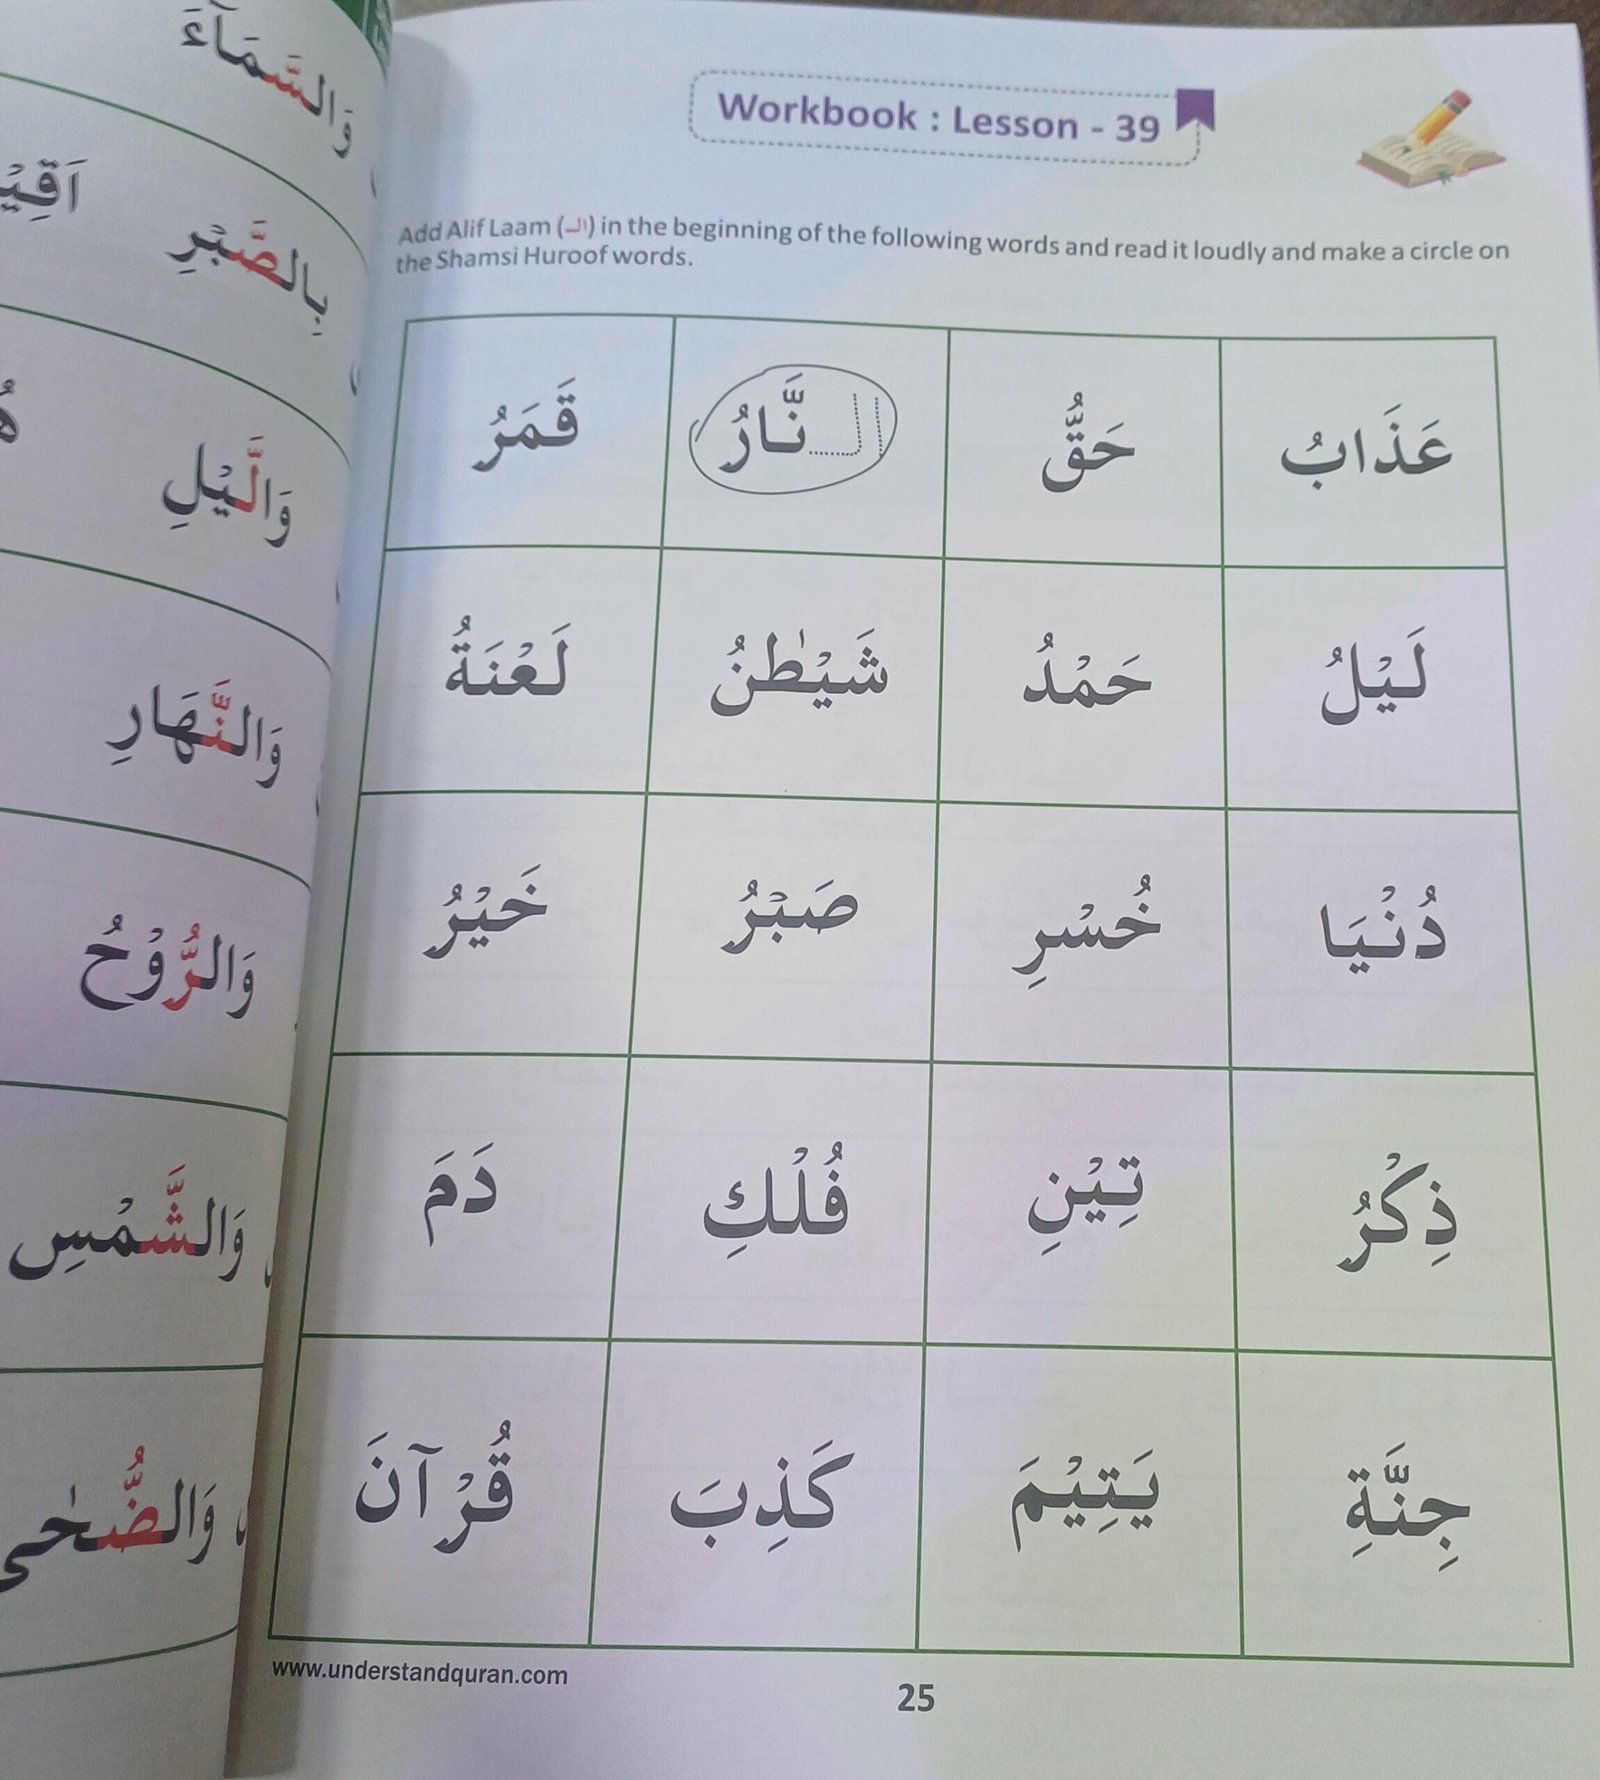 Workbook : Lesson - 39
Add Alif Laam (الـ) in the beginning of the following words and read it loudly and make a circle on
the Shamsi Huroof words.
عَذَابُ حَقُّ النَّارُ قَمَرُ
لَيْلُ حَمْدُ شَيْطٰنُ لَعْنَةُ
دُنْيَا خُسْرِ صَبْرُ خَيْرُ
ذِكْرُ تِيْنِ فُلْكِ دَمَ
جِنَّةِ يَتِيْمَ كَذِبَ قُرْآنَ
www.understandquran.com
25
وَالسَّمَآءَ
بِالصَّبْرِ
وَالَّيْلِ
وَالنَّهَارِ
وَالرُّوْحُ
وَالشَّمْسِ
وَالضُّحٰى